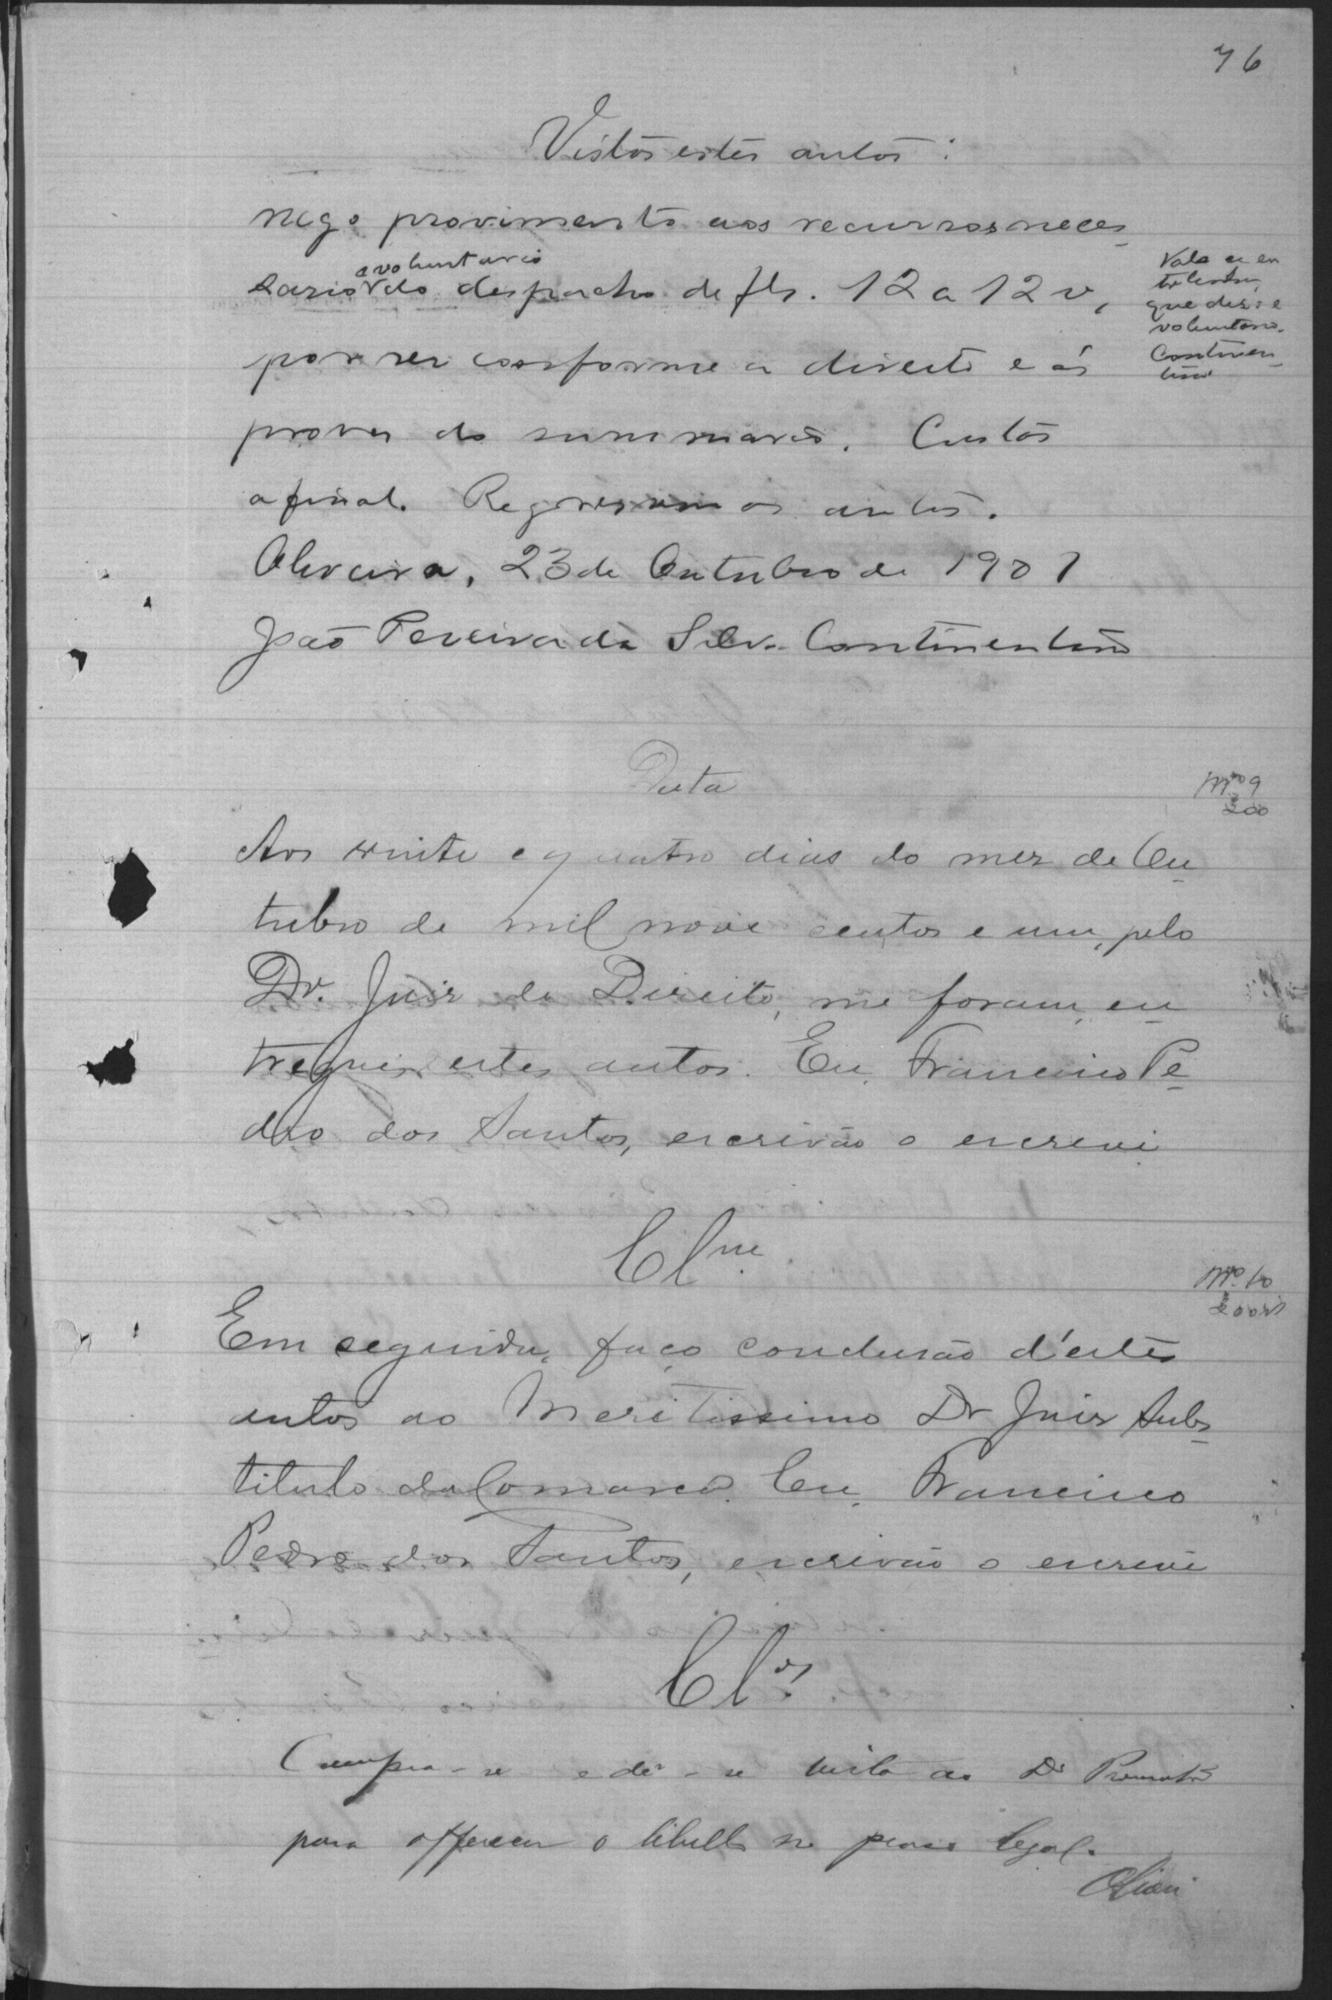 76
Vistos estes autos:
nego provimento aos recursos neces
sario e voluntario do despacho de fls. 12 a 12 v,
Vale a en
trelinha,
que diz: e
voluntario.
Continen
tino
por ser conforme a direito e ás
provas do summario. Custas
afinal. Regressem os autos.
Oliveira, 23 de Outubro de 1901
João Pereira da Silva Continentino
Data
Nº 9
200
Aos vinte e quatro dias do mez de Ou
tubro de mil nove centos e um, pelo
Dr. Juiz de Direito, me foram, en
tregues estes autos. Eu, Francisco Pe
dro dos Santos, escrivão o escrevi
Cl.ne
Nº 10
200 rs
Em seguida, faço conclusão d'estes
autos ao Meritissimo Dr Juiz Subs
tituto da Comarca. Eu, Francisco
Pedro dos Santos, escrivão o escrevi
Cl.os
Cumpra-se e dê-se vista ao Dr Promotor
para offerecer o libello no praso legal.